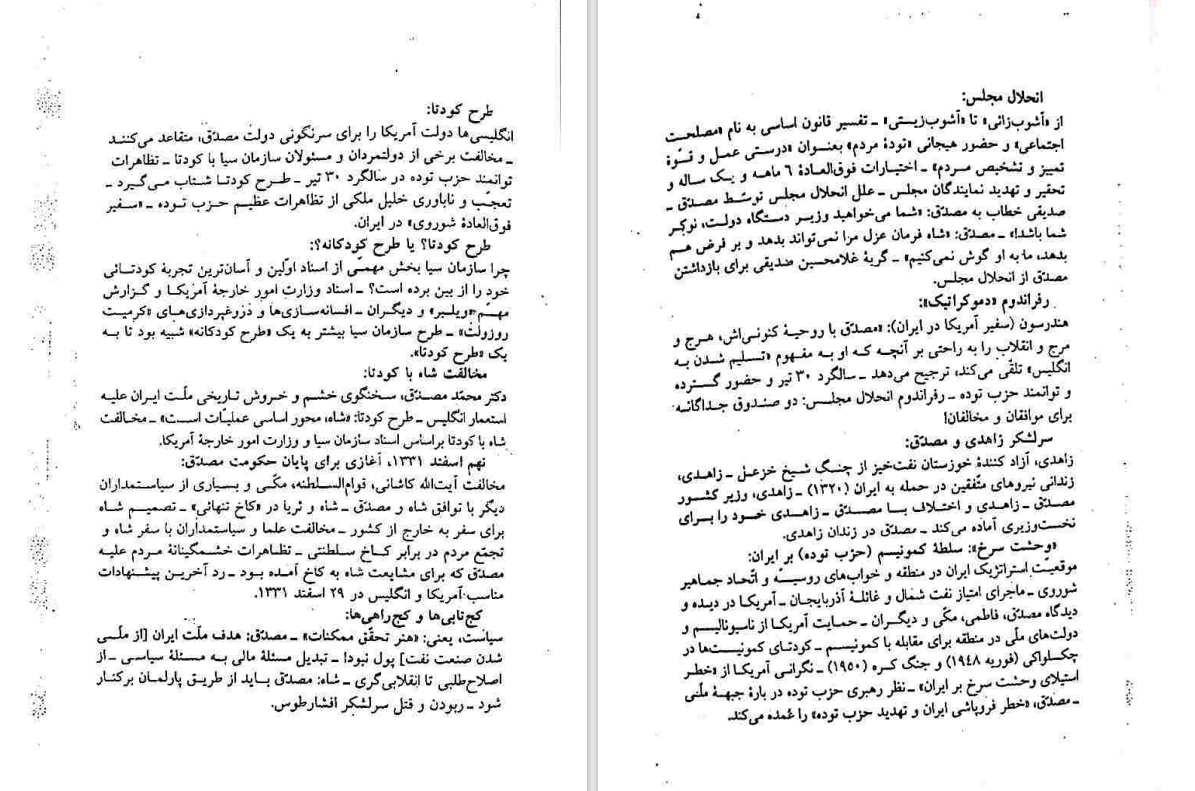 انحلال مجلس:
از «آشوب‌زائی» تا «آشوب‌زیستی» ـ تفسیر قانون اساسی به نام «مصلحت
اجتماعی» و حضور هیجانی «تودهٔ مردم» بعنوان «درستی عمل و قوّهٔ
تمیز و تشخیص مردم» ـ اختیارات فوق‌العادهٔ ۶ ماهه و یک ساله و
تحقیر و تهدید نمایندگان مجلس ـ علل انحلال مجلس توسّط مصدّق ـ
صدیقی خطاب به مصدّق: «شما می‌خواهید وزیر دستگاه دولت، نوکر
شما باشد!» ـ مصدّق: «شاه فرمان عزل مرا نمی‌تواند بدهد و بر فرض هم
بدهد، ما به او گوش نمی‌کنیم» ـ گریهٔ غلامحسین صدیقی برای بازداشتن
مصدّق از انحلال مجلس.
رفراندوم «دموکراتیک»:
هندرسون (سفیر آمریکا در ایران): «مصدّق با روحیهٔ کنونی‌اش، هرج و
مرج و انقلاب را به راحتی بر آنچه که او به مفهوم «تسلیم شدن به
انگلیس» تلقّی می‌کند، ترجیح می‌دهد ـ سالگرد ۳۰ تیر و حضور گسترده
و توانمند حزب توده ـ رفراندوم انحلال مجلس: دو صندوق جداگانه
برای موافقان و مخالفان!
سرلشکر زاهدی و مصدّق:
زاهدی، آزاد کنندهٔ خوزستان نفت‌خیز از چنگ شیخ خزعل ـ زاهدی،
زندانی نیروهای متّفقین در حمله به ایران (۱۳۲۰) ـ زاهدی، وزیر کشور
مصدّق ـ زاهدی و اختلاف با مصدّق ـ زاهدی خود را برای
نخست‌وزیری آماده می‌کند ـ مصدّق در زندان زاهدی.
«وحشت سرخ»: سلطهٔ کمونیسم (حزب توده) بر ایران:
موقعیّت استراتژیک ایران در منطقه و خواب‌های روسیّه و اتّحاد جماهیر
شوروی ـ ماجرای امتیاز نفت شمال و غائلهٔ آذربایجان ـ آمریکا در دیده و
دیدگاه مصدّق، فاطمی، مکّی و دیگران ـ حمایت آمریکا از ناسیونالیسم و
دولت‌های ملّی در منطقه برای مقابله با کمونیسم ـ کودتای کمونیست‌ها در
چکسلواکی (فوریه ۱۹۴۸) و جنگ کره (۱۹۵۰) ـ نگرانی آمریکا از «خطر
استیلای وحشت سرخ بر ایران» ـ نظر رهبری حزب توده در بارهٔ جبههٔ ملّی
ـ مصدّق، «خطر فروپاشی ایران و تهدید حزب توده» را عُمده می‌کند.
طرح کودتا:
انگلیسی‌ها دولت آمریکا را برای سرنگونی دولت مصدّق، متقاعد می‌کنند
ـ مخالفت برخی از دولتمردان و مسئولان سازمان سیا با کودتا ـ تظاهرات
توانمند حزب توده در سالگرد ۳۰ تیر ـ طرح کودتا شتاب می‌گیرد ـ
تعجّب و ناباوری خلیل ملکی از تظاهرات عظیم حزب توده ـ «سفیر
فوق‌العادهٔ شوروی» در ایران.
طرح کودتا؟ یا طرح کودکانه؟:
چرا سازمان سیا بخش مهمّی از اسناد اوّلین و آسان‌ترین تجربهٔ کودتائی
خود را از بین برده است؟ ـ اسناد وزارت امور خارجهٔ آمریکا و گزارش
مهمّ «ویلبر» و دیگران ـ افسانه‌سازی‌ها و دروغپردازی‌های «کرمیت
روزولت» ـ طرح سازمان سیا بیشتر به یک «طرح کودکانه» شبیه بود تا به
یک «طرح کودتا».
مخالفت شاه با کودتا:
دکتر محمّد مصدّق، سخنگوی خشم و خروش تاریخی ملّت ایران علیه
استعمار انگلیس ـ طرح کودتا: «شاه، محور اساسی عملیّات است» ـ مخالفت
شاه با کودتا براساس اسناد سازمان سیا و وزارت امور خارجهٔ آمریکا.
نهم اسفند ۱۳۳۱، آغازی برای پایان حکومت مصدّق:
مخالفت آیت‌الله کاشانی، قوام‌السلطنه، مکّی و بسیاری از سیاستمداران
دیگر با توافق شاه و مصدّق ـ شاه و ثریا در «کاخ تنهائی» ـ تصمیم شاه
برای سفر به خارج از کشور ـ مخالفت علما و سیاستمداران با سفر شاه و
تجمّع مردم در برابر کاخ سلطنتی ـ تظاهرات خشمگینانهٔ مردم علیه
مصدّق که برای مشایعت شاه به کاخ آمده بود ـ رد آخرین پیشنهادات
مناسب آمریکا و انگلیس در ۲۹ اسفند ۱۳۳۱.
کج‌تابی‌ها و کج‌راهی‌ها:
سیاست، یعنی: «هنر تحقّق ممکنات» ـ مصدّق: هدف ملّت ایران [از ملّی
شدن صنعت نفت] پول نبود! ـ تبدیل مسئلهٔ مالی به مسئلهٔ سیاسی ـ از
اصلاح‌طلبی تا انقلابی‌گری ـ شاه: مصدّق باید از طریق پارلمان برکنار
شود ـ ربودن و قتل سرلشکر افشارطوس.